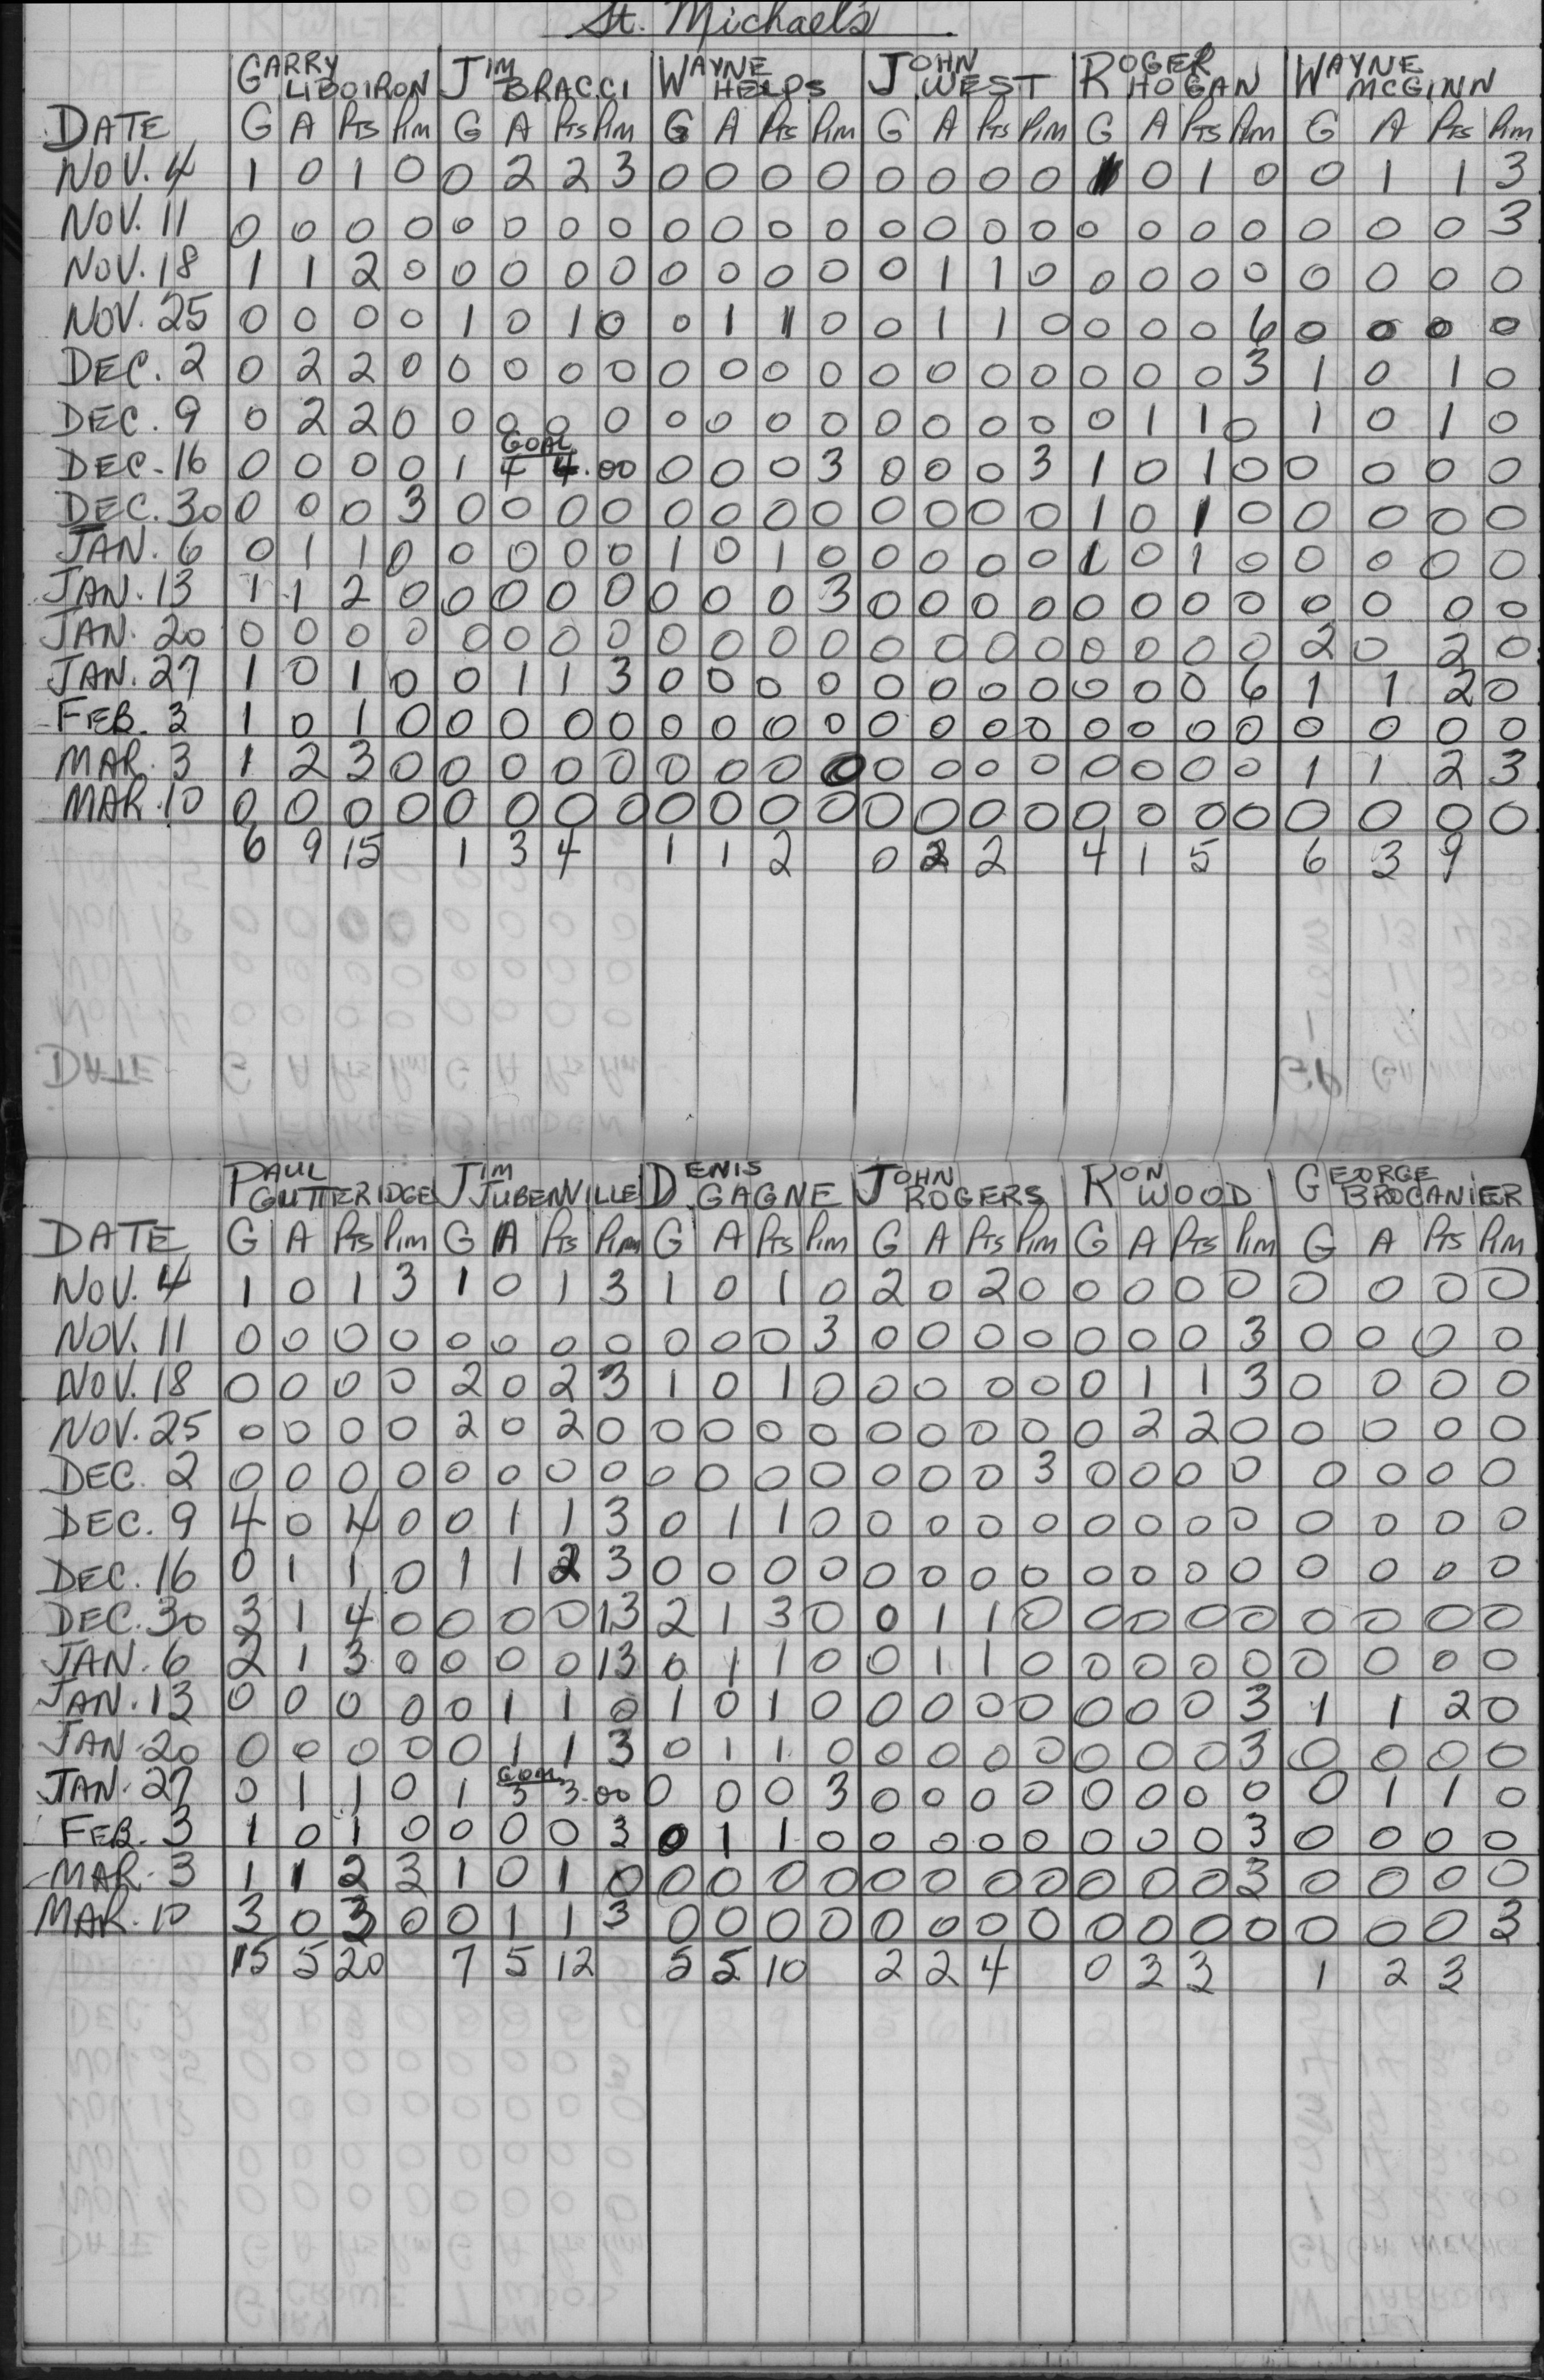 St. Michael's
GARRY LIBOIRON JIM BRACCI WAYNE HELPS JOHN WEST ROGER HOGAN WAYNE MCGINN
DATE G A PTS PIM G A PTS PIM G A PTS PIM G A PTS PIM G A PTS PIM G A PTS PIM
NOV. 4 1 0 1 0 0 2 2 3 0 0 0 0 0 0 0 0 1 0 1 0 0 1 1 3
NOV. 11 0 0 0 0 0 0 0 0 0 0 0 0 0 0 0 0 0 0 0 0 0 0 0 3
NOV. 18 1 1 2 0 0 0 0 0 0 0 0 0 0 1 1 0 0 0 0 0 0 0 0 0
NOV. 25 0 0 0 0 1 0 1 0 0 1 1 0 0 1 1 0 0 0 0 6 0 0 0 0
DEC. 2 0 2 2 0 0 0 0 0 0 0 0 0 0 0 0 0 0 0 0 3 1 0 1 0
DEC. 9 0 2 2 0 0 0 0 0 0 0 0 0 0 0 0 0 0 1 1 0 1 0 1 0
GOAL
DEC. 16 0 0 0 0 1 4 4.00 0 0 0 3 0 0 0 3 1 0 1 0 0 0 0 0
DEC. 30 0 0 0 3 0 0 0 0 0 0 0 0 0 0 0 0 1 0 1 0 0 0 0 0
JAN. 6 0 1 1 0 0 0 0 0 1 0 1 0 0 0 0 0 1 0 1 0 0 0 0 0
JAN. 13 1 1 2 0 0 0 0 0 0 0 0 3 0 0 0 0 0 0 0 0 0 0 0 0
JAN. 20 0 0 0 0 0 0 0 0 0 0 0 0 0 0 0 0 0 0 0 0 2 0 2 0
JAN. 27 1 0 1 0 0 1 1 3 0 0 0 0 0 0 0 0 0 0 0 6 1 1 2 0
FEB. 3 1 0 1 0 0 0 0 0 0 0 0 0 0 0 0 0 0 0 0 0 0 0 0 0
MAR. 3 1 2 3 0 0 0 0 0 0 0 0 0 0 0 0 0 0 0 0 0 1 1 2 3
MAR. 10 0 0 0 0 0 0 0 0 0 0 0 0 0 0 0 0 0 0 0 0 0 0 0 0
6 9 15 1 3 4 1 1 2 0 2 2 4 1 5 6 3 9
PAUL GUTTERIDGE JIM JUBENVILLE DENIS GAGNE JOHN ROGERS RON WOOD GEORGE BROCANIER
DATE G A PTS PIM G A PTS PIM G A PTS PIM G A PTS PIM G A PTS PIM G A PTS PIM
NOV. 4 1 0 1 3 1 0 1 3 1 0 1 0 2 0 2 0 0 0 0 0 0 0 0 0
NOV. 11 0 0 0 0 0 0 0 0 0 0 0 3 0 0 0 0 0 0 0 3 0 0 0 0
NOV. 18 0 0 0 0 2 0 2 3 1 0 1 0 0 0 0 0 0 1 1 3 0 0 0 0
NOV. 25 0 0 0 0 2 0 2 0 0 0 0 0 0 0 0 0 0 2 2 0 0 0 0 0
DEC. 2 0 0 0 0 0 0 0 0 0 0 0 0 0 0 0 3 0 0 0 0 0 0 0 0
DEC. 9 4 0 4 0 0 1 1 3 0 1 1 0 0 0 0 0 0 0 0 0 0 0 0 0
DEC. 16 0 1 1 0 1 1 2 3 0 0 0 0 0 0 0 0 0 0 0 0 0 0 0 0
DEC. 30 3 1 4 0 0 0 0 13 2 1 3 0 0 1 1 0 0 0 0 0 0 0 0 0
JAN. 6 2 1 3 0 0 0 0 13 0 1 1 0 0 1 1 0 0 0 0 0 0 0 0 0
JAN. 13 0 0 0 0 0 1 1 0 1 0 1 0 0 0 0 0 0 0 0 3 1 1 2 0
JAN. 20 0 0 0 0 0 1 1 3 0 1 1 0 0 0 0 0 0 0 0 3 0 0 0 0
GOAL
JAN. 27 0 1 1 0 1 3 3.00 0 0 0 3 0 0 0 0 0 0 0 0 0 1 1 0
FEB. 3 1 0 1 0 0 0 0 3 0 1 1 0 0 0 0 0 0 0 0 3 0 0 0 0
MAR. 3 1 1 2 3 1 0 1 0 0 0 0 0 0 0 0 0 0 0 0 3 0 0 0 0
MAR. 10 3 0 3 0 0 1 1 3 0 0 0 0 0 0 0 0 0 0 0 0 0 0 0 3
15 5 20 7 5 12 5 5 10 2 2 4 0 3 3 1 2 3